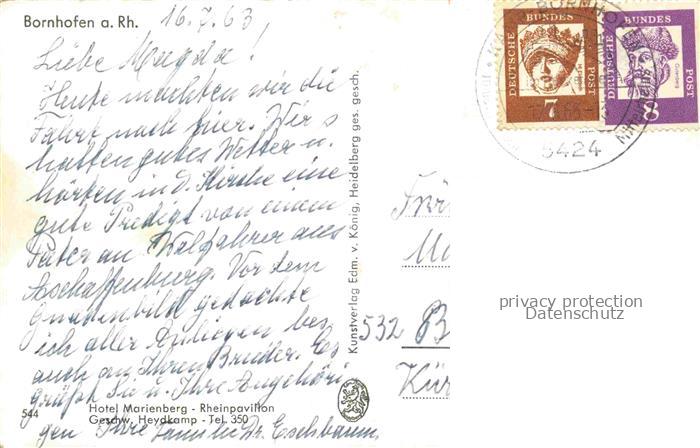 Bornhofen a. Rh.
16.7.63
Liebe Magda!
Heute machten wir die
Fahrt nach hier. Wir
hatten gutes Wetter u.
hörten in d. Kirche eine
gute Predigt von einem
Pater an Wallfahrer aus
Aschaffenburg. Vor dem
Gnadenbild gedachte
ich aller Anliegen bes.
auch an Ihren Bruder. Es
grüßt Sie u. Ihre Angehöri
gen Ihre Familie Dr. Eschbaum
544
Hotel Marienberg - Rheinpavillon
Geschw. Heydkamp - Tel. 350
Kunstverlag Edm. v. König, Heidelberg ges. gesch.
DEUTSCHE BUNDES POST
7
DEUTSCHE BUNDES POST
Gutenberg
8
BORNHOFEN
5424
532 B
privacy protection
Datenschutz